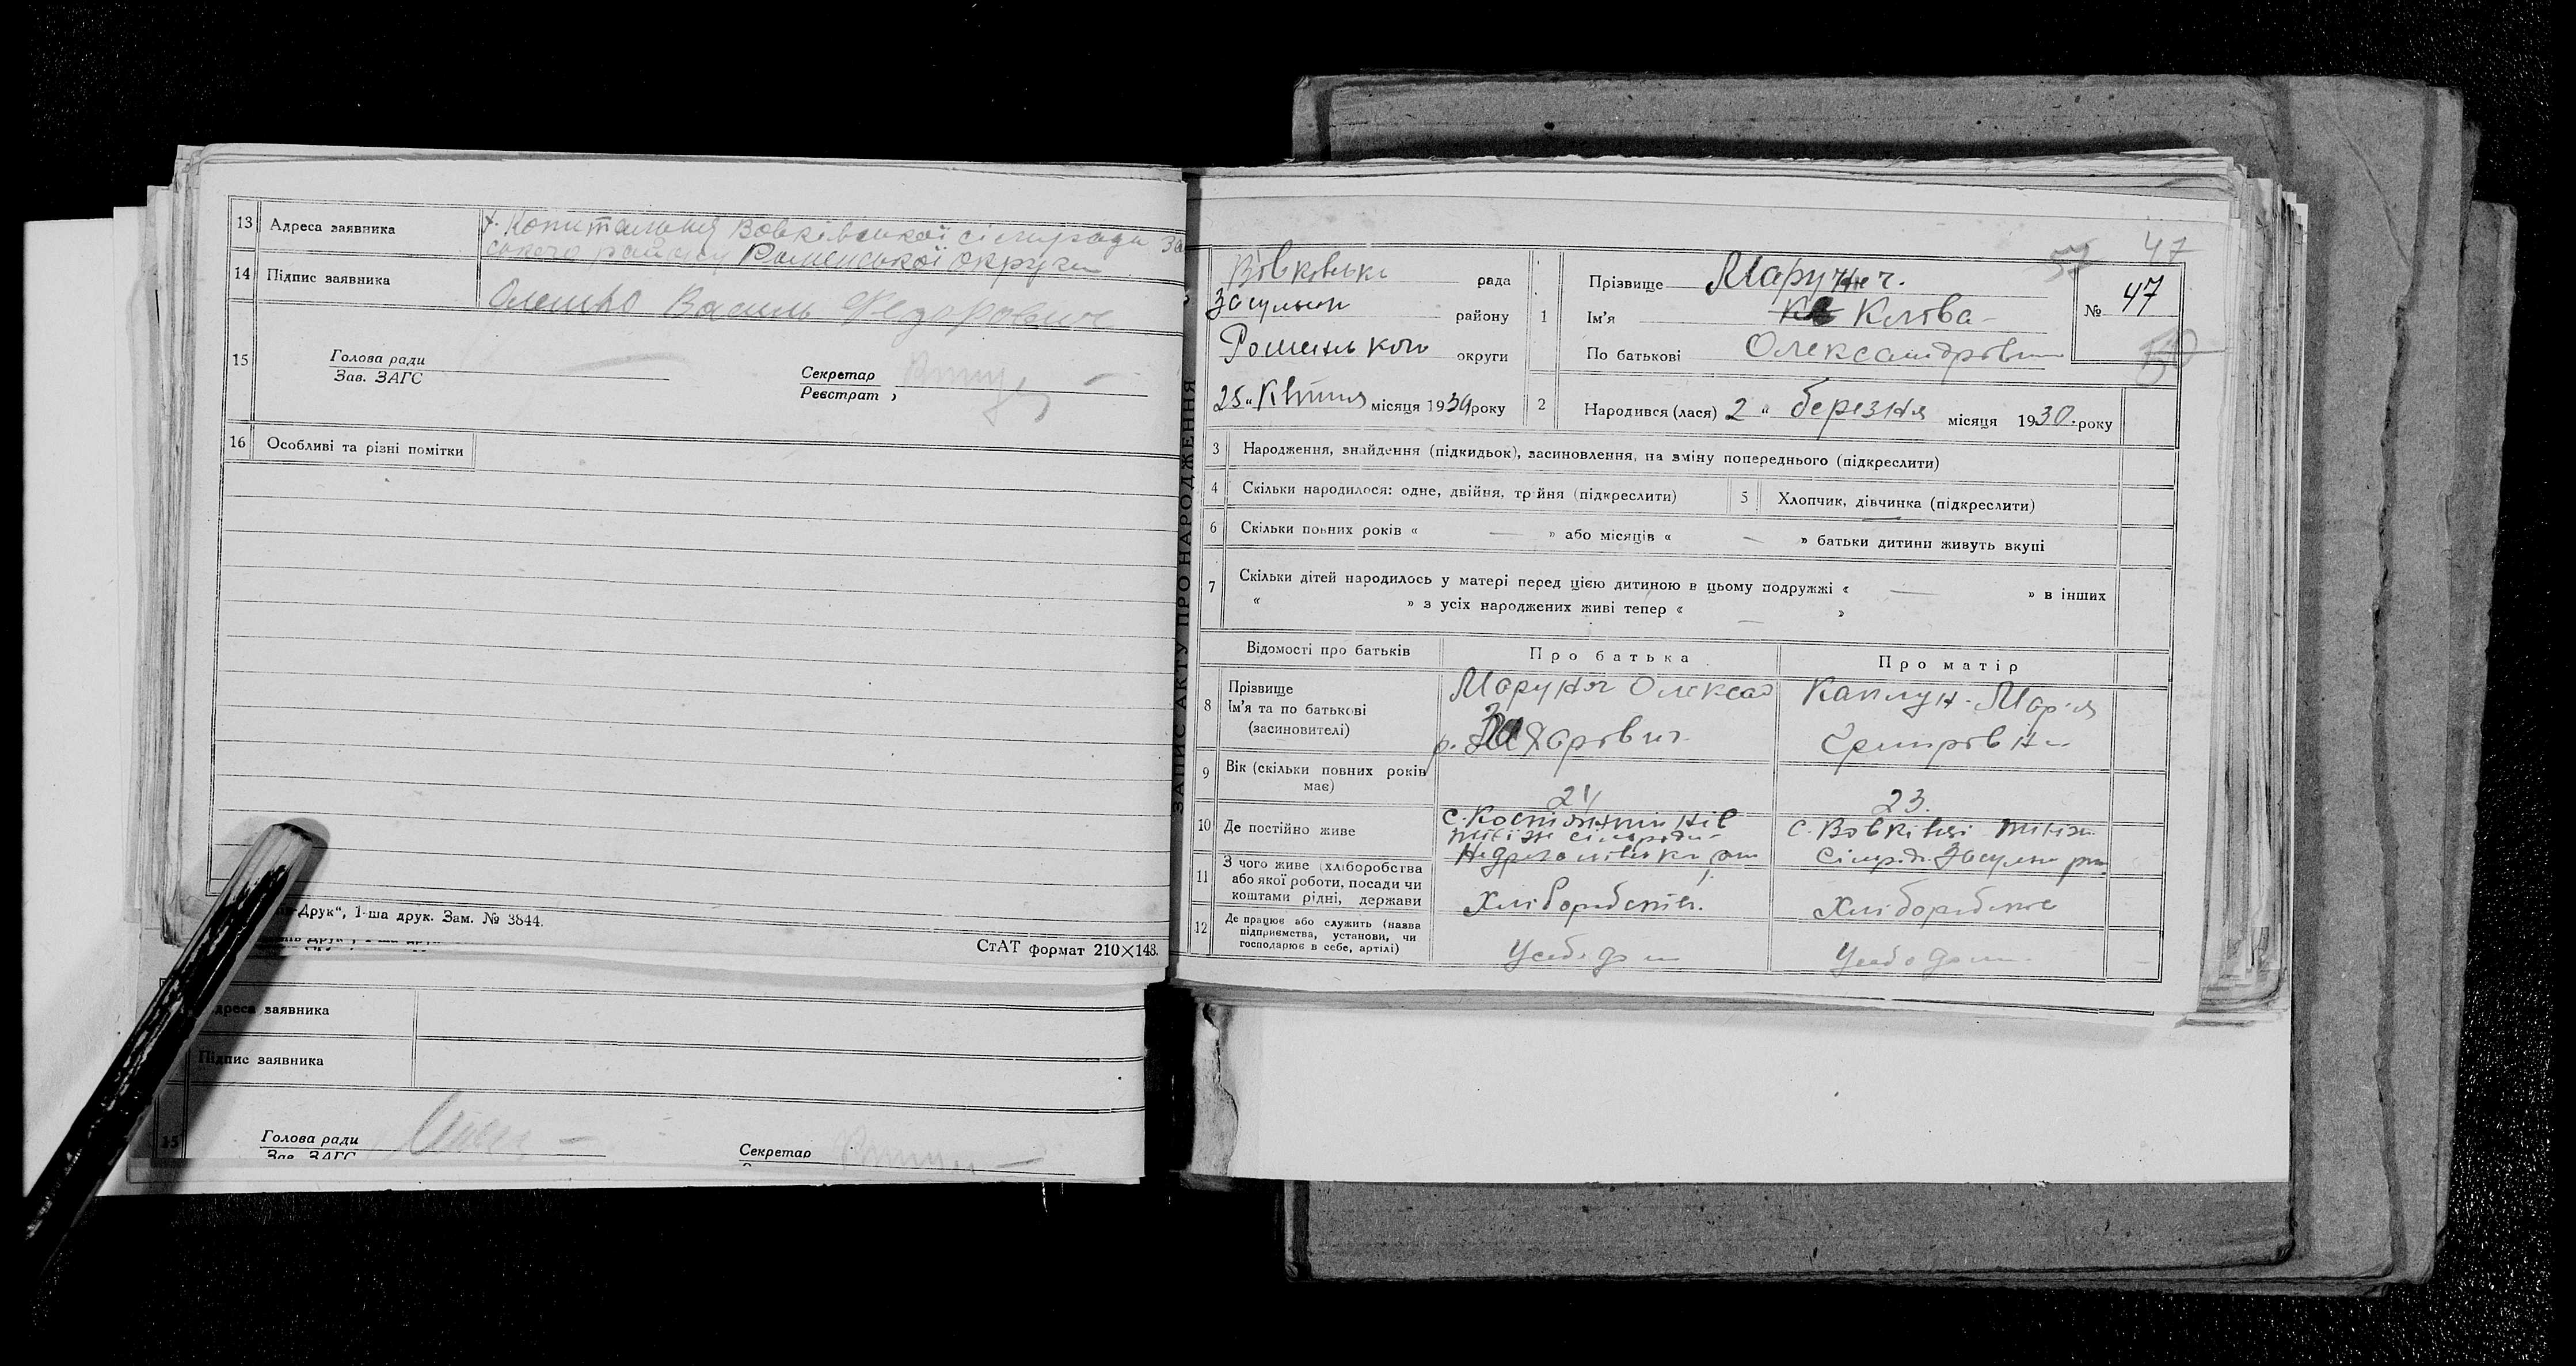 13 Адреса заявника
х. Копитальня Вовківської сільради За
ського району Роменської округи
14 Підпис заявника
Олешко Василь Федорович
15
Голова ради
Зав. ЗАГС
Секретар
Реєстрат
16 Особливі та різні помітки
-Друк“, 1-ша друк. Зам. № 3844.
СтАТ формат 210×148.
Адреса заявника
Підпис заявника
15
Голова ради
Зав. ЗАГС
Секретар
ЗАПИС АКТУ ПРО НАРОДЖЕННЯ
57 47
Вовківська рада
Засульськ району
Роменського округи
25 „ Квітня місяця 1930 року
1
Прізвище Маруняч.
Ім'я Клавa
По батькові Олександрівна
№ 47
2 Народився (лася) 2 „ березня місяця 1930. року
3 Народження, знайдення (підкидьок), засиновлення, на зміну попереднього (підкреслити)
4 Скільки народилося: одне, двійня, трійня (підкреслити)
5 Хлопчик, дівчинка (підкреслити)
6 Скільки повних років « — » або місяців « — » батьки дитини живуть вкупі
7 Скільки дітей народилось у матері перед цією дитиною в цьому подружжі « — » в інших
« » з усіх народжених живі тепер « — »
Відомості про батьків
Про батька
Про матір
8 Прізвище
Ім'я та по батькові
(засиновителі)
Маруняч Олексад
р. Захарович
Каплун Марія
9 Вік (скільки повних років
має)
21
23.
10 Де постійно живе
с. Костянтинів
тієїж сільради
Недригайлівськ р-ну
с. Вовківці тієїж
сільради Засульс р-ну
11 З чого живе (хліборобства
або якої роботи, посади чи
коштами рідні, держави
Хліборобство.
Хліборобство
12 Де працює або служить (назва
підприємства, установи, чи
господарює в себе, артілі)
У себе дома
У себе дома